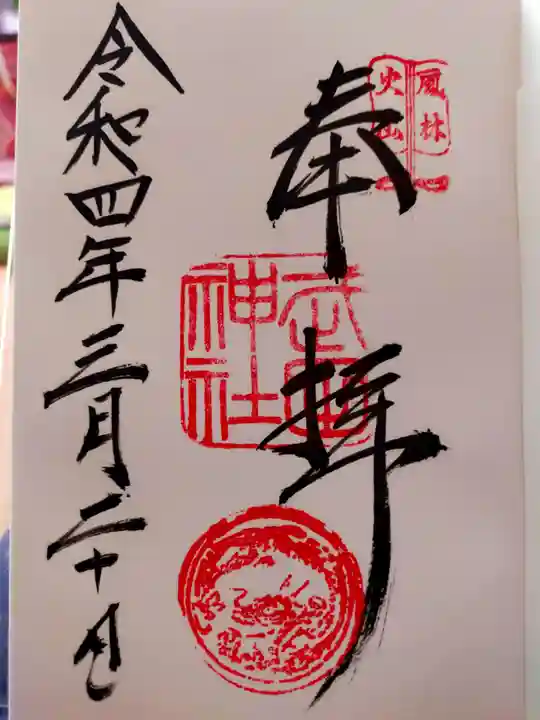 風林
火山
奉拝
神社
令和四年三月二十日